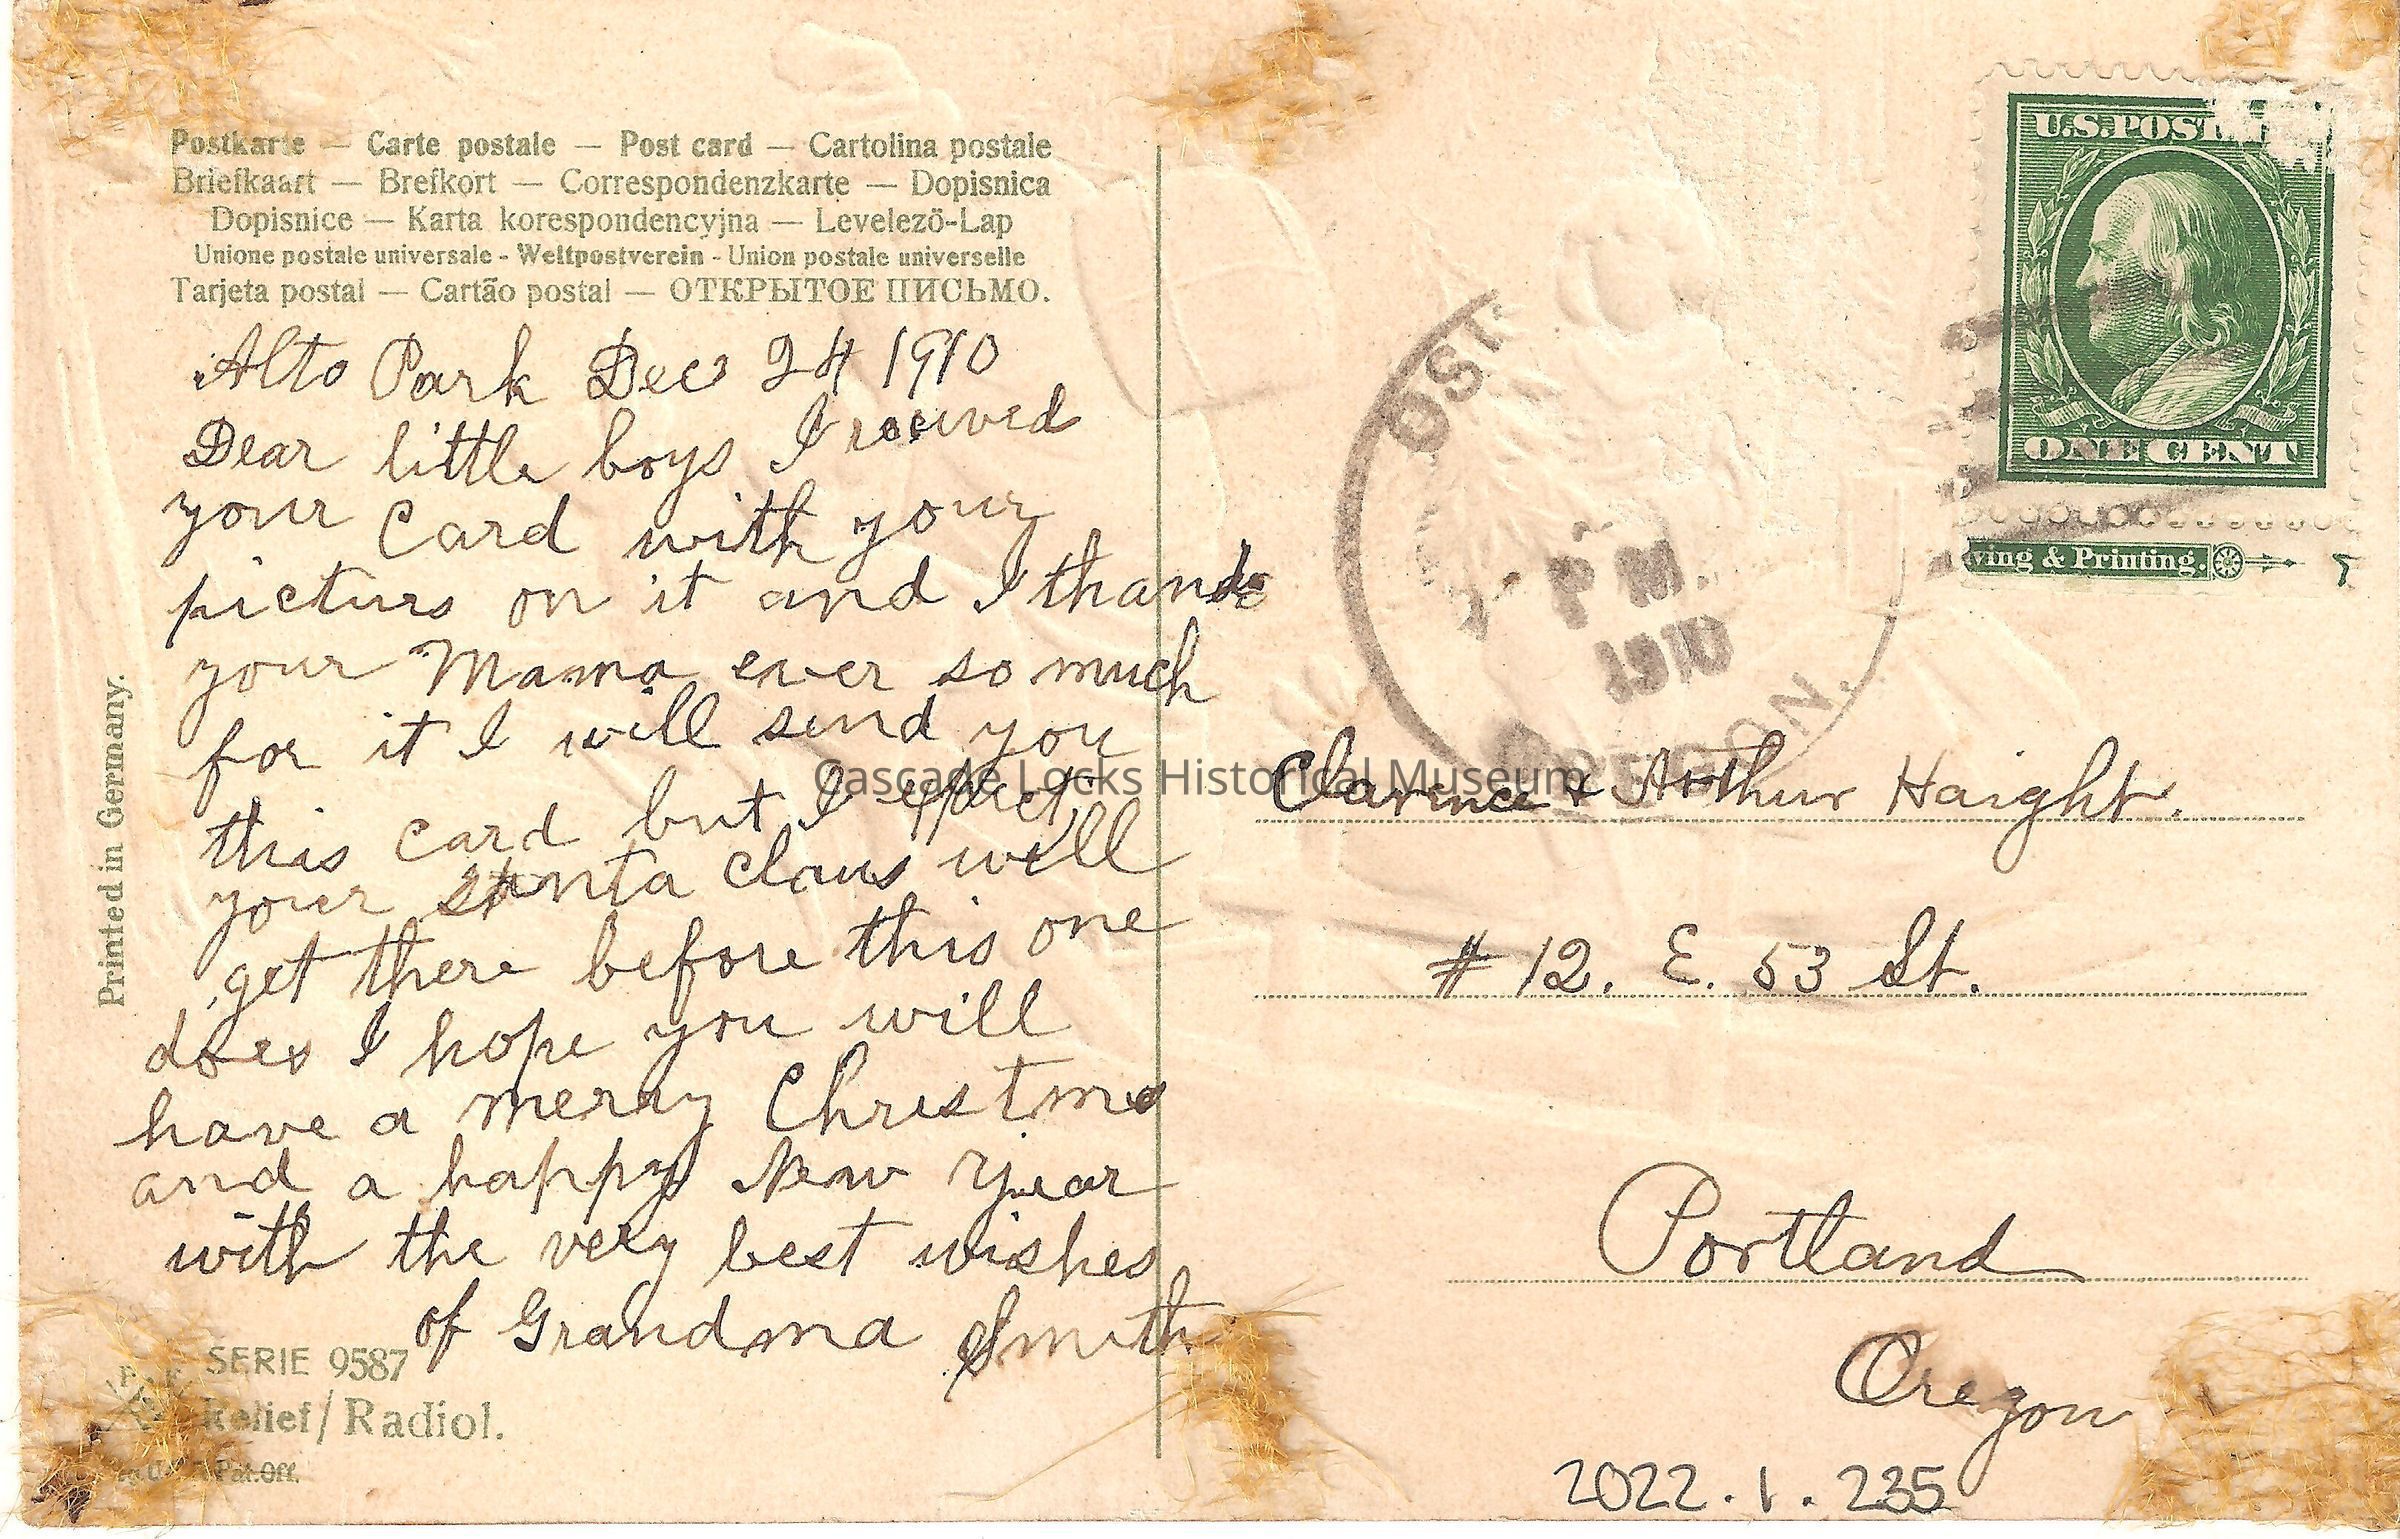 Postkarte — Carte postale — Post card — Cartolina postale
Briefkaart — Brefkort — Correspondenzkarte — Dopisnica
Dopisnice — Karta korespondencyjna — Levelezö-Lap
Unione postale universale - Weltpostverein - Union postale universelle
Tarjeta postal — Cartão postal — ОТКРЫТОЕ ПИСЬМО.
Alto Park Dec 24 1910
Dear little boys I
your Card with your
picturs on it and I thank
your Mama ever so much
for it I will send you
this card but I expect
your Santa claus will
get there before this one
does I hope you will
have a merry Christmas
and a happy New Year
with the very best wishes
of Grandma Smith
Printed in Germany.
SERIE 9587
Relief/Radiol.
Pat.Off.
U.S.POST
ONE CENT
ving & Printing.
P M.
1910
OREGON.
Cascade Locks Historical Museum
Clarence & Arthur Haight.
# 12. E. 53 St.
Portland
Oregon
2022.1.235